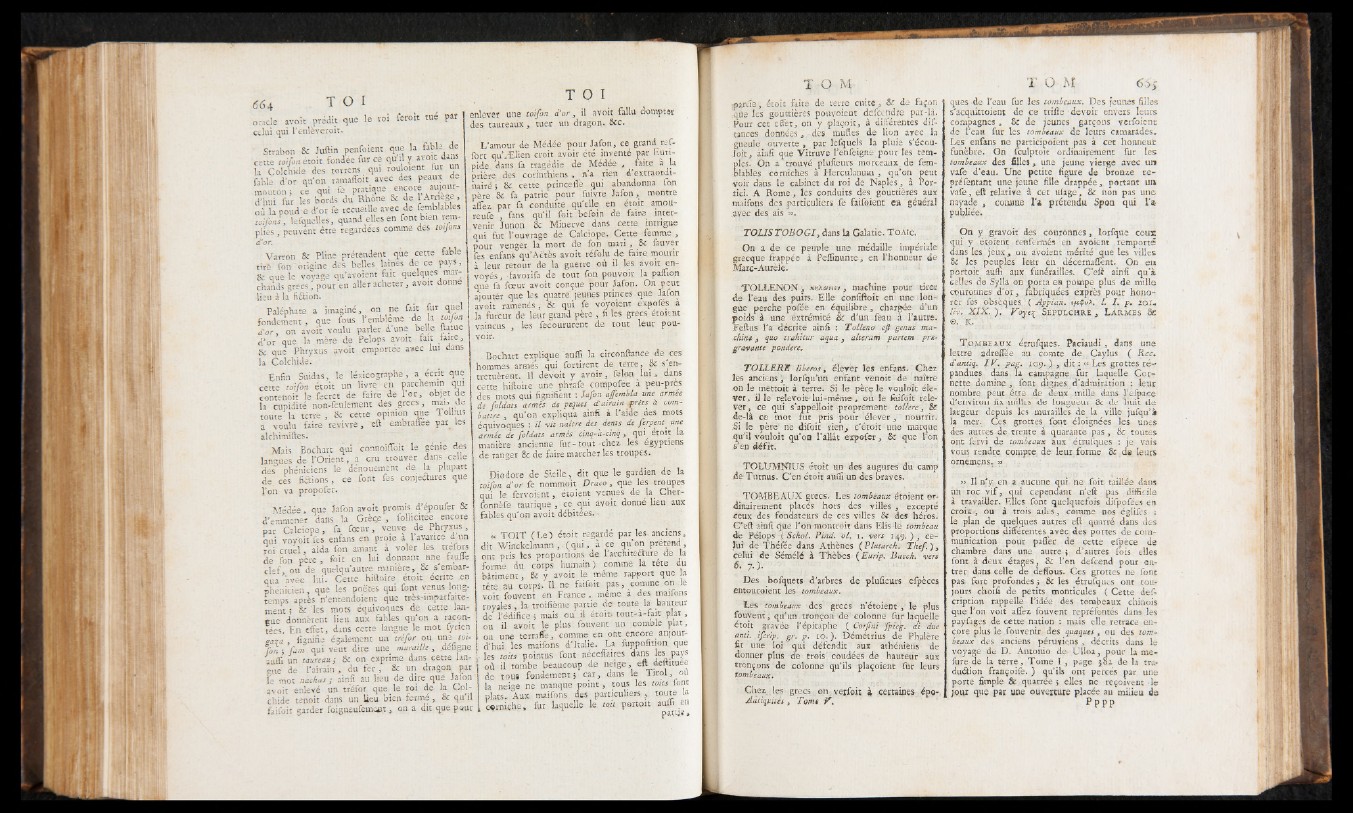 664 T O I
oracle avoit prédit que le roi ſeroit tué par
celui qui l'enleveroit.
Strabon & Juſtin penſoient que la fable de
cette toiſon étoit fondée ſur ce qu'il y avoit dans
la Colchide des torrens qui rouloient ſur un
ſable d'or qu'on ramaſſoit avec des peaux de
mouton ; ce qui ſe pratique encore aujour-
d'hui ſur les bords du Rhône & de l'Arriège,
où la poudre d'or ſe recueille avec de ſemblables
toiſons, leſquelles, quand elles en ſont bien rem-
plies, peuvent être regardées comme des toiſons
d'or.
Varron & Pline prétendent que cette fable
tire ſon origine des belles laines de ce pays,
& que le voyage qu'avoient fait quelques mar-
chands grecs, pour en aller acheter, avoit donné
lieu à la fiction.
Paléphate a imaginé, on ne ſait ſur quel
fondement, que ſous l'emblême de la toiſon
d'or, on avoit voulu parler d'une belle ſtatue
d'or que la mère de Pelops avoit fait faire,
& que Phryxus avoit emportée avec lui dans
la Colchide.
Enfin Suidas, le léxicographe, a écrit que
cette toiſon étoit un livre en parchemin qui
contenoit le ſecret de faire de l'or, objet de
la cupidité non-ſeulement des grecs, mais de
toute la terre, & cette opinion que Tollius
a voulu faire revivre, eſt embraſſée par les
alchimiſtes.
Mais Bochart qui connoiſſoit le génie des
langues de l'Orient, a cru trouver dans celle
des phéniciens le dénouement de la plupart
de ces fictions, ce ſont ſes conjectures que
l'on va propoſer.
Médée, que Jaſon avoit promis d'épouſer &
d'emmener dans la Grèce, ſollicitée encore
par Calciope, ſa ſœur, veuve de Phryxus,
qui voyoit ſes enfans en proie à l'avarice d'un
roi cruel, aida ſon amant à voler les tréſors
de ſon père, ſoit en lui donnant une fauſſe
clef, ou de quelqu'autre manière, & s'embar-
qua avec lui. Cette hiſtoire étoit écrite en
phénicien, que les poëtes qui ſont venus long-
temps après n'entendoient que très-imparfaite-
ment ; & les mots équivoques de cette lan-
gue donnèrent lieu aux fables qu'on a racon-
tées. En effet, dans cette langue le mot ſyrien
gaza, ſignifie également un tréſor ou une toi-
ſon ; ſam qui veut dire une muraille, déſigne
auſſi un taureau ; & on exprime dans cette lan-
gue de l'airain, du fer, & un dragon par
le mot nachas ; ainſi au lieu de dire que Jaſon
avoit enlevé un tréſor que le roi de la Col-
chide tenoit dans un lieu bien fermé, & qu'il
faiſoit garder ſoigneuſement, on a dit que pour
T O I
enlever une toiſon d'or, il avoit fallu dompter
des taureaux, tuer un dragon, &c.
L'amour de Médée pour Jaſon, ce grand reſ-
ſort qu'Ælien croit avoir été inventé par Euri-
pide dans ſa tragédie de Médée, faite à la
prière des corinthiens, n'a rien d'extraordi-
naire ; & cette princeſſe qui abandonna ſon
père & ſa patrie pour ſuivre Jaſon, montre
aſſez par ſa conduite qu'elle en étoit amou-
reuſe, ſans qu'il ſoit beſoin de faire inter-
venir Junon & Minerve dans cette intrigue
qui fut l'ouvrage de Calciope. Cette femme,
pour venger la mort de ſon mari, & ſauver
ſes enfans qu'Aétès avoit réſolu de faire mourir
à leur retour de la guerre où il les avoit en-
voyés, favoriſa de tout ſon pouvoir la paſſion
que ſa ſœur avoit conçue pour Jaſon. On peut
ajouter que les quatre jeunes princes que Jaſon
avoit ramenés, & qui ſe voyoient expoſés à
la fureur de leur grand père, ſi les grecs étoient
vaincus, les ſecoururent de tout leur pou-
voir.
Bochart explique auſſi la circonſtance de ces
hommes armés qui ſortirent de terre, & s'en-
tretuèrent. Il devoit y avoir, ſelon lui, dans
cette hiſtoire une phraſe compoſée à peu-près
des mots qui ſignifient : Jaſon aſſembla une armée
de ſoldats armés de piques d'airain prêts à com-
battre, qu'on expliqua ainſi à l'aide des mots
équivoques : il vit naître des dents de ſerpent une
armée de ſoldats armés cinq-à-cinq, qui étoit la
manière ancienne ſur-tout chez les égyptiens
de ranger & de faire marcher les troupes.
Diodore de Sicile, dit que le gardien de la
toiſon d'or ſe nommoit Draco, que les troupes
qui le ſervoient, étoient venues de la Cher-
ſonnèſe taurique, ce qui avoit donné lieu aux
fables qu'on avoit débitées.
« TOIT (Le) étoit regardé par les anciens,
dit Winckelmann, (qui, à ce qu'on prétend,
ont pris les proportions de l'architecture de la
forme du corps humain) comme la tête du
bâtiment, & y avoit le même rapport que la
tête au corps. Il ne faiſoit pas, comme on le
voit ſouvent en France, même à des maiſons
royales, la troiſième partie de toute la hauteur
de l'édifice ; mais ou il étoit tout-à-fait plat,
ou il avoit le plus ſouvent un comble plat,
ou une terraſſe, comme en ont encore aujour-
d'hui les maiſons d'Italie. La ſuppoſition que
les toits pointus ſont néceſſaires dans les pays
où il tombe beaucoup de neige, eſt deſtituée
de tout fondement ; car, dans le Tirol, où
la neige ne manque point, tous les toits ſont
plats. Aux maiſons des particuliers, toute la
corniche, ſur laquelle le toit portoit auſſi en
partie,
T O M
partie, étoit faite de terre cuite, & de façon
que les gouttières pouvoient deſcendre par-là.
Pour cet effet, on y plaçoit, à différentes diſ-
tances données, des mufles de lion avec la
gueule ouverte, par leſquels la pluie s'écou-
loit, ainſi que Vitruve l'enſeigne pour les tem-
ples. On a trouvé pluſieurs morceaux de ſem-
blables corniches à Herculanum, qu'on peut
voir dans le cabinet du roi de Naples, à Por-
tici. A Rome, les conduits des gouttières aux
maiſons des particuliers ſe faiſoient en général
avec des ais ».
TOLISTOBOGI, dans la Galatie. ΤΟΛΙC.
On a de ce peuple une médaille impériale
grecque frappée à Peſſinunte, en l'honneur de
Marc-Aurele.
TOLLENON, machine pour tirer
de l'eau des puits. Elle conſiſtoit en une lon-
gue perche poſée en équilibre, chargée d'un
poids à une extrêmité & d'un ſeau à l'autre.
Feſtus l'a décrite ainſi : Tolleno eſt genus ma-
chinæ, quo trahitur aqua, alteram partem præ-
gravante pondere.
TOLLERE liberos, élever les enfans. Chez
les anciens, lorſqu'un enfant venoit de naître
on le mettoit à terre. Si le père le vouloit éle-
ver, il le relevoit lui-même, ou le faiſoit rele-
ver, ce qui s'appelloit proprement tollere, &
de-là ce mot fut pris pour élever, nourrir.
Si le père ne diſoit rien, c'étoit une marque
qu'il vouloit qu'on l'allât expoſer, & que l'on
s'en défît.
TOLUMNIUS étoit un des augures du camp
de Turnus. C'en étoit auſſi un des braves.
TOMBEAUX grecs. Les tombeaux étoient or-
dinairement placés hors des villes, excepté
ceux des fondateurs de ces villes & des héros.
C'eſt ainſi que l'on montroit dans Elis le tombeau
de Pélops (Schol. Pind. ol. 1. vers 149.), ce-
lui de Théſée dans Athènes (Plutarch. Theſ.),
celui de Sémélé à Thèbes (Eurip. Bacch. vers
6. 7.).
Des boſquets d'arbres de pluſieurs eſpèces
entouroient les tombeaux.
Les tombeaux des grecs n'étoient, le plus
ſouvent, qu'un tronçon de colonne ſur laquelle
étoit gravée l'épitaphe (Corſini ſpicg. di due
anti. iſcrip. gr. p. 10.). Démétrius de Phalère
fit une loi qui défendit aux athéniens de
donner plus de trois coudées de hauteur aux
tronçons de colonne qu'ils plaçoient ſur leurs
tombeaux.
Chez les grecs on verſoit à certaines épo-
Antiquités, Tome V.
T O M 665
ques de l'eau ſur les tombeaux. Des jeunes filles
s'acquittoient de ce triſte devoir envers leurs
compagnes, & de jeunes garçons verſoient
de l'eau ſur les tombeaux de leurs camarades.
Les enfans ne participoient pas à cet honneur
funèbre. On ſculptoit ordinairement ſur les
tombeaux des filles, une jeune vierge avec un
vaſe d'eau. Une petite figure de bronze re-
préſentant une jeune fille drappée, portant un
vaſe, eſt relative à cet uſage, & non pas une
nayade, comme l'a prétendu Spon qui l'a
publiée.
On y gravoit des couronnes, lorſque ceux
qui y étoient renfermés en avoient remporté
dans les jeux, ou avoient mérité que les villes
& les peuples leur en décernaſſent. On en
portoit auſſi aux funérailles. C'eſt ainſi qu'à
celles de Sylla on porta en pompe plus de mille
couronnes d'or, fabriquées exprès pour hono-
rer ſes obsèques (Appian. l. I. p. 201.
liv. XIX.). Voyez SEPULCHRE, LARMES &
TOMBEAUX étruſques. Paciaudi, dans une
lettre adreſſée au comte de Caylus (Rec.
d'antiq. IV. pag. 109.), dit : « Les grottes ré-
pandues dans la campagne ſur laquelle Cor-
nette domine, ſont dignes d'admiration : leur
nombre peut être de deux mille dans l'eſpace
d'environ ſix milles de longueur & de huit de
largeur depuis les murailles de la ville juſqu'à
la mer. Ces grottes ſont éloignées les unes
des autres de trente à quarante pas, & toutes
ont ſervi de tombeaux aux étruſques : je vois
vous rendre compte de leur forme & de leurs
ornemens. »
» Il n'y en a aucune qui ne ſoit taillée dans
un roc vif, qui cependant n'eſt pas difficile
à travailler. Elles ſont quelquefois diſpoſées en
croix, ou à trois aîles, comme nos égliſes :
le plan de quelques autres eſt quarré dans des
proportions différentes avec des portes de com-
munication pour paſſer de cette eſpèce de
chambre dans une autre ; d'autres fois elles
ſont à deux étages, & l'on deſcend pour en-
trer dans celle de deſſous. Ces grottes ne ſont
pas fort profondes ; & les étruſques ont tou-
jours choiſi de petits monticules (Cette deſ-
cription rappelle l'idée des tombeaux chinois
que l'on voit aſſez ſouvent repréſentés dans les
payſages de cette nation : mais elle retrace en-
core plus le ſouvenir des quaques, ou des tom-
beaux des anciens péruviens, décrits dans le
voyage de D. Antonio de Ulloa, pour la me-
ſure de la terre, Tome I, page 382 de la tra-
duction françoiſe.) qu'ils ont percés par une
porte ſimple & quarrée ; elles ne reçoivent le
jour que par une ouverture placée au milieu de
P p p p